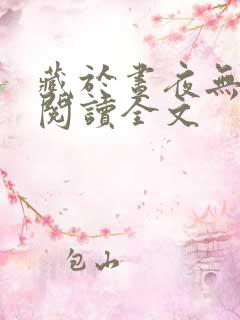 藏於晝夜無
閱讀全文
包山